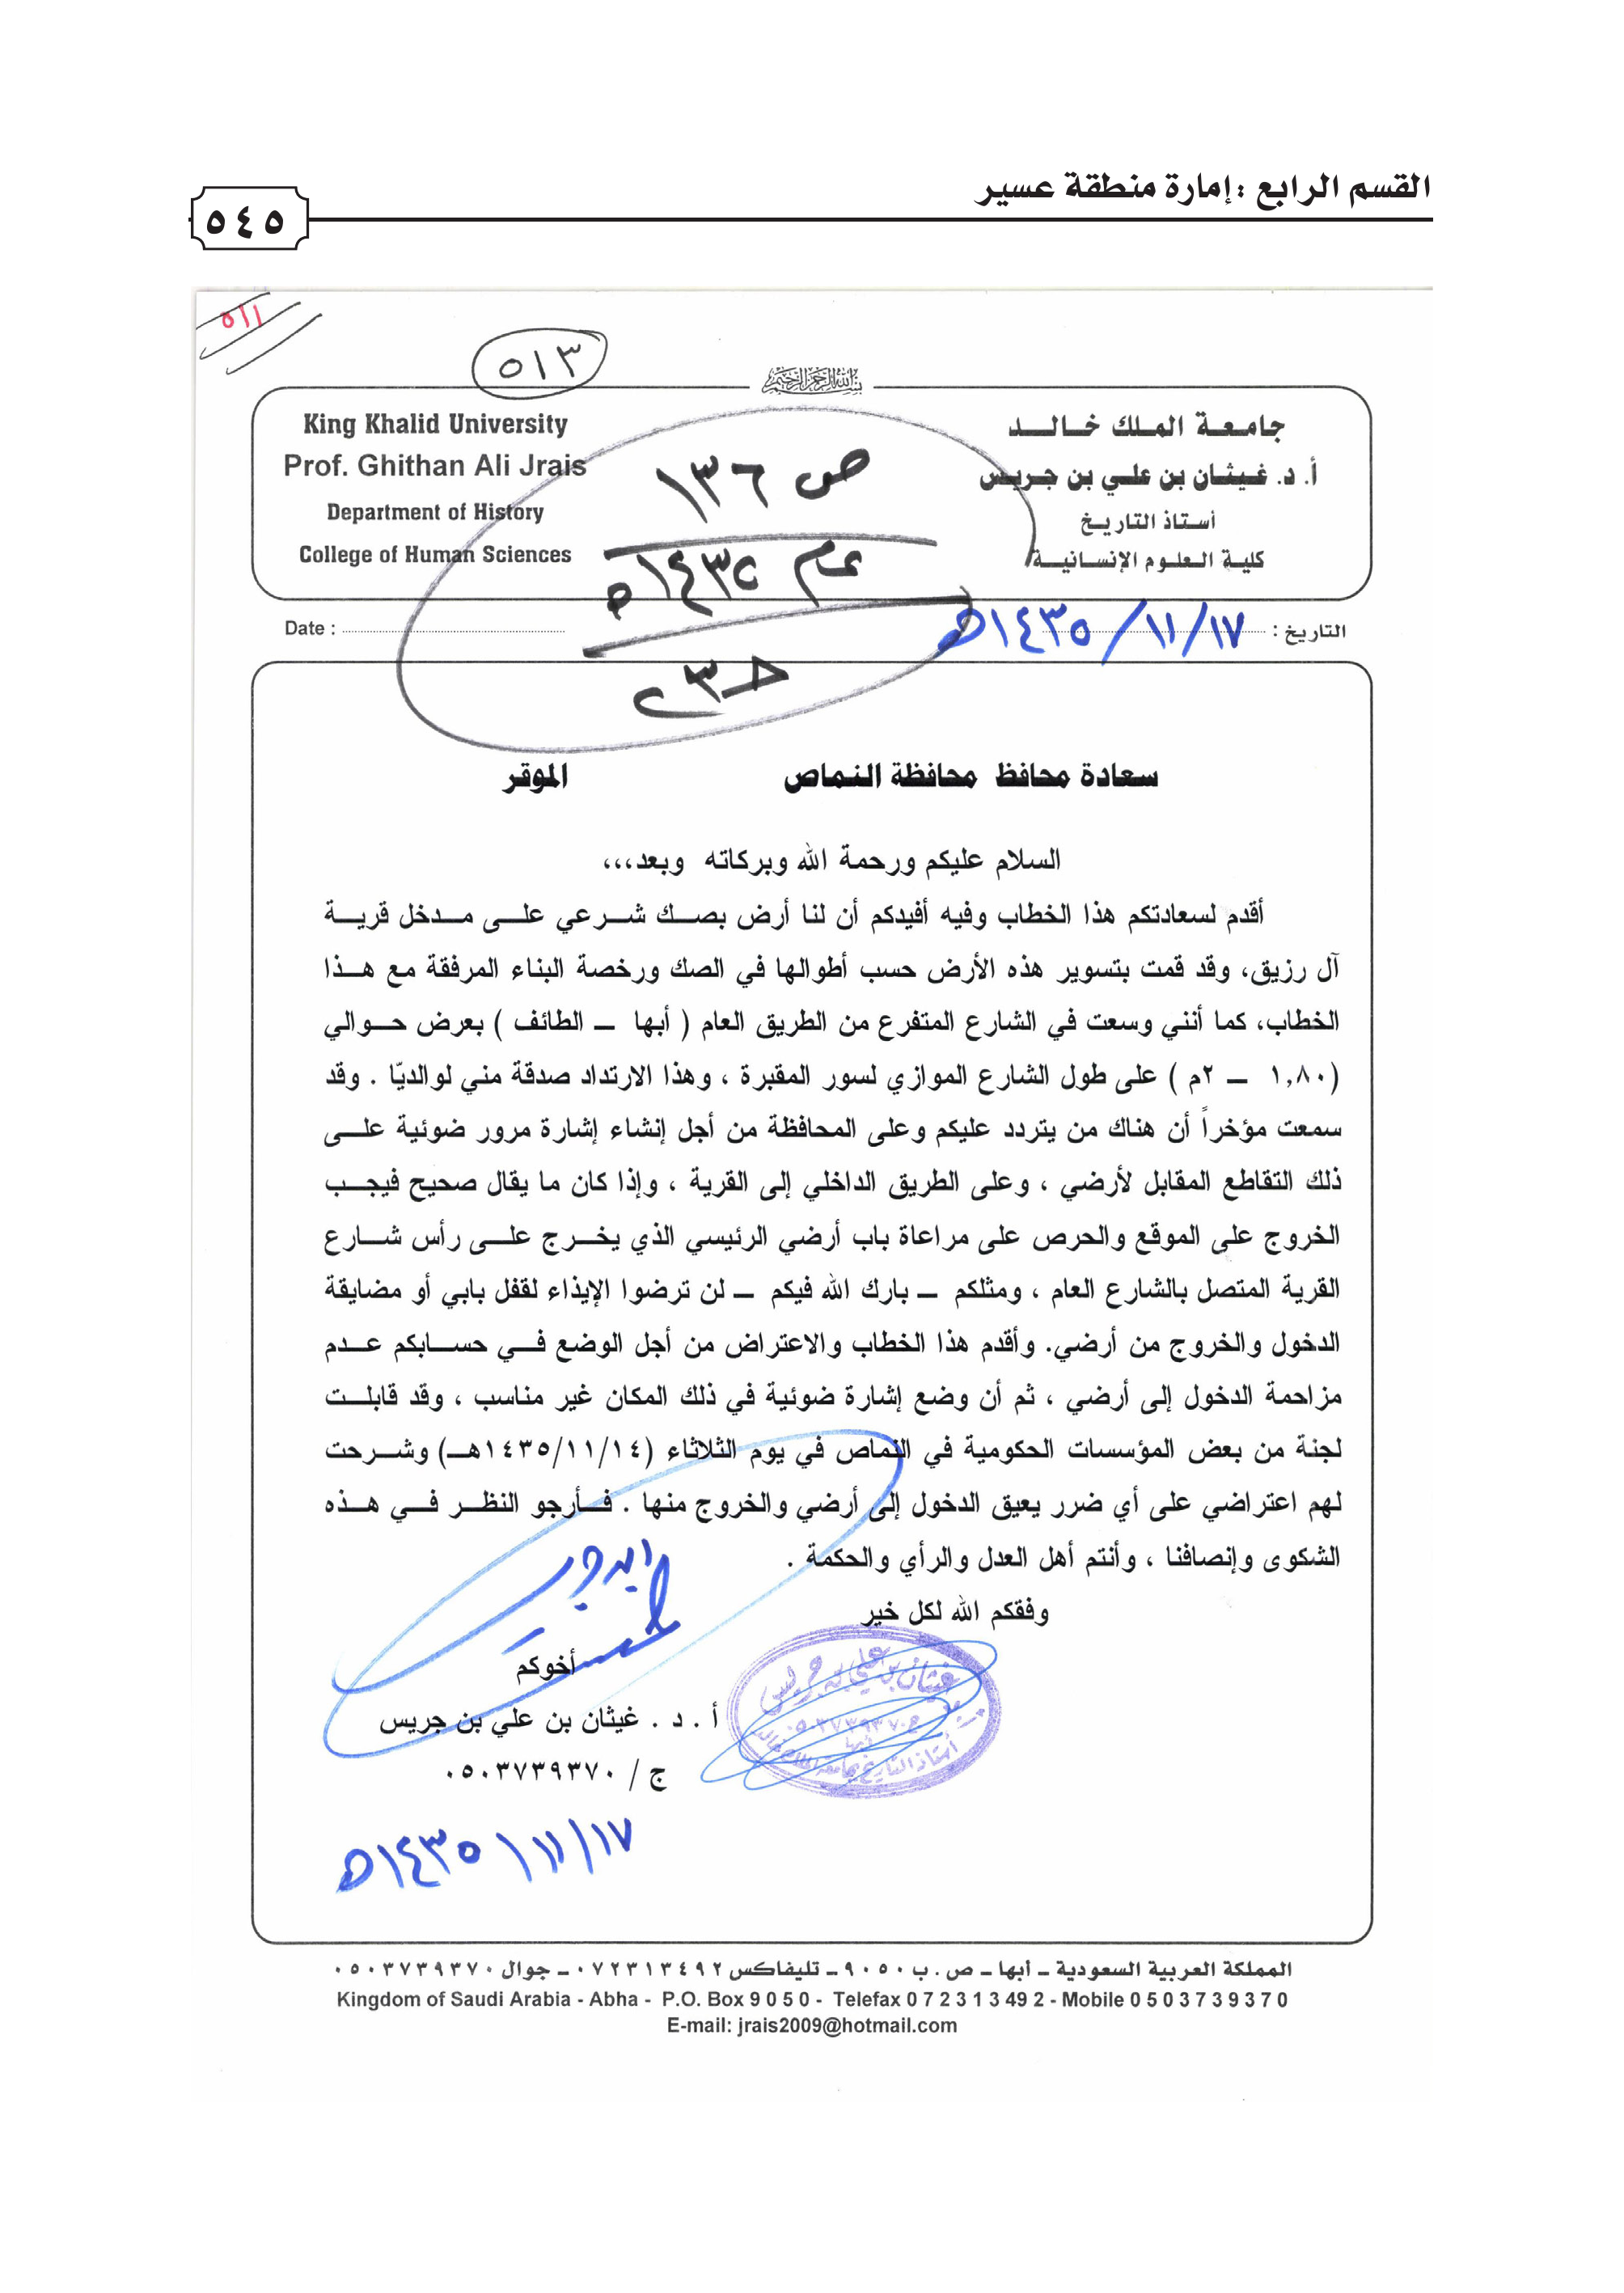 القسم الرابع : إمارة منطقة عسير
٥٤٥
٥١١
٥١٣
بسم الله الرحمن الرحيم
King Khalid University
Prof. Ghithan Ali Jrais
Department of History
College of Human Sciences
جامعة الملك خالد
أ. د. غيثان بن علي بن جريس
أستاذ التاريخ
كلية العلوم الإنسانية
ص ١٣٦
عام ١٤٣٥هـ
Date :
التاريخ : ١٧/ ١١/ ١٤٣٥هـ
سعادة محافظ محافظة النماص الموقر
السلام عليكم ورحمة الله وبركاته وبعد،،،
أقدم لسعادتكم هذا الخطاب وفيه أفيدكم أن لنا أرض بصك شرعي على مدخل قرية
آل رزيق، وقد قمت بتسوير هذه الأرض حسب أطوالها في الصك ورخصة البناء المرفقة مع هذا
الخطاب، كما أنني وسعت في الشارع المتفرع من الطريق العام ( أبها – الطائف ) بعرض حوالي
(١,٨٠ – ٢م ) على طول الشارع الموازي لسور المقبرة ، وهذا الارتداد صدقة مني لوالديّا . وقد
سمعت مؤخراً أن هناك من يتردد عليكم وعلى المحافظة من أجل إنشاء إشارة مرور ضوئية على
ذلك التقاطع المقابل لأرضي ، وعلى الطريق الداخلي إلى القرية ، وإذا كان ما يقال صحيح فيجب
الخروج على الموقع والحرص على مراعاة باب أرضي الرئيسي الذي يخرج على رأس شارع
القرية المتصل بالشارع العام ، ومثلكم – بارك الله فيكم – لن ترضوا الإيذاء لقفل بابي أو مضايقة
الدخول والخروج من أرضي. وأقدم هذا الخطاب والاعتراض من أجل الوضع في حسابكم عدم
مزاحمة الدخول إلى أرضي ، ثم أن وضع إشارة ضوئية في ذلك المكان غير مناسب ، وقد قابلت
لجنة من بعض المؤسسات الحكومية في النماص في يوم الثلاثاء (١٤٣٥/١١/١٤هـ) وشرحت
لهم اعتراضي على أي ضرر يعيق الدخول إلى أرضي والخروج منها . فأرجو النظر في هذه
الشكوى وإنصافنا ، وأنتم أهل العدل والرأي والحكمة .
وفقكم الله لكل خير
أخوكم
أ . د . غيثان بن علي بن جريس
ج / ٠٥٠٣٧٣٩٣٧٠
غيثان بن علي بن جريس
أستاذ التاريخ بجامعة الملك خالد
١٧/ ١١/ ١٤٣٥هـ
المملكة العربية السعودية – أبها – ص . ب ٩٠٥٠ – تليفاكس ٠٧٢٣١٣٤٩٢ – جوال ٠٥٠٣٧٣٩٣٧٠
Kingdom of Saudi Arabia - Abha - P.O. Box 9 0 5 0 - Telefax 0 7 2 3 1 3 49 2 - Mobile 0 5 0 3 7 3 9 3 7 0
E-mail: jrais2009@hotmail.com